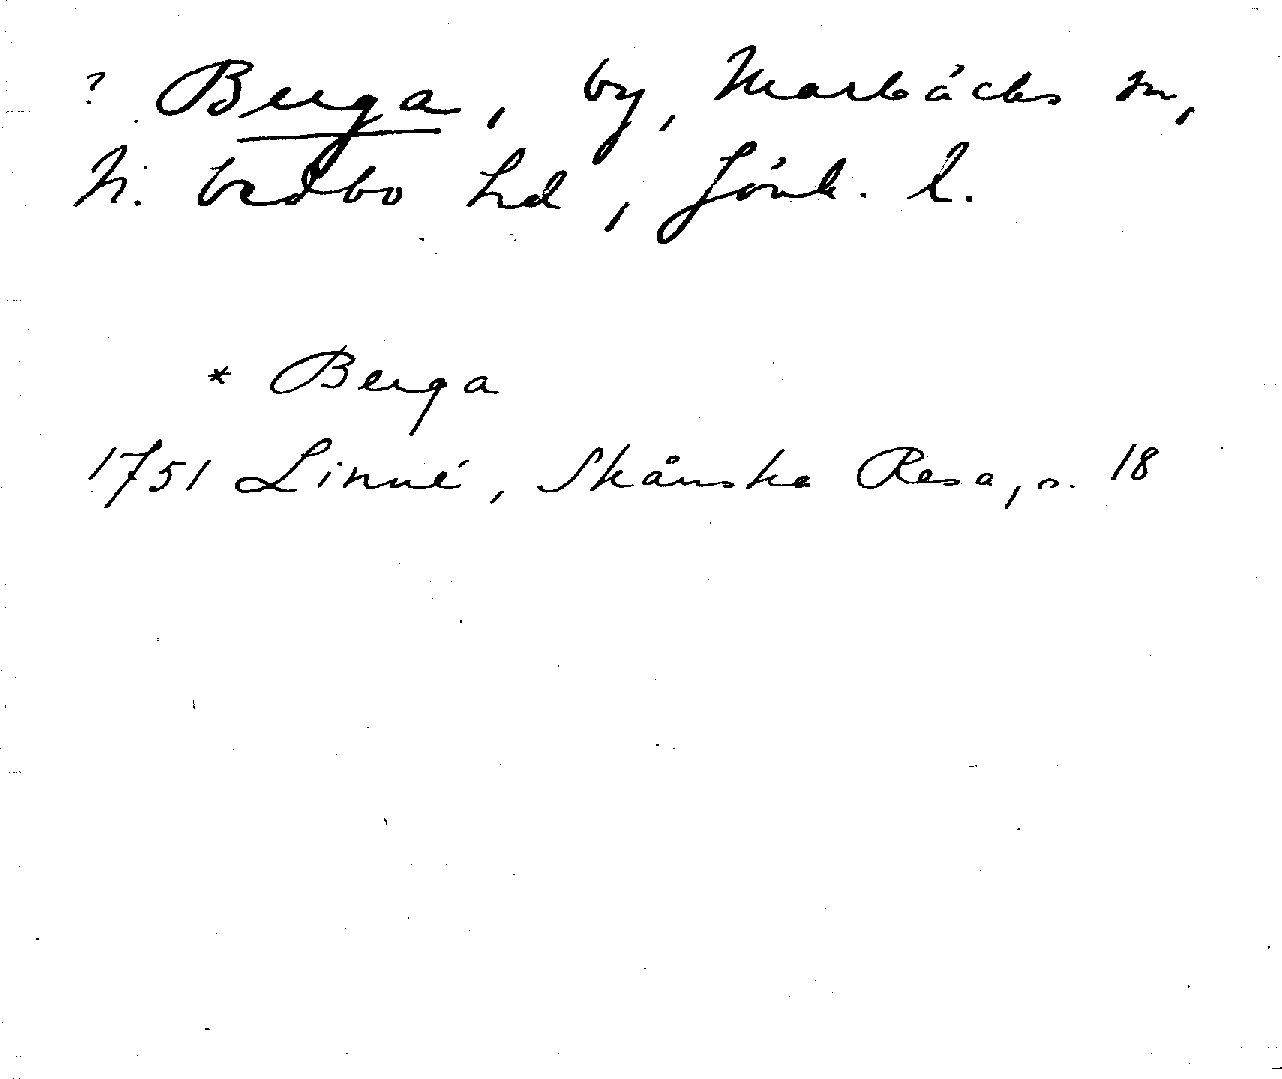 ? Berga, by, Marbäcks sn,
N. Vedbo hd, Jönk. l.
* Berga
1751 Linné, Skånska Resa, s. 18